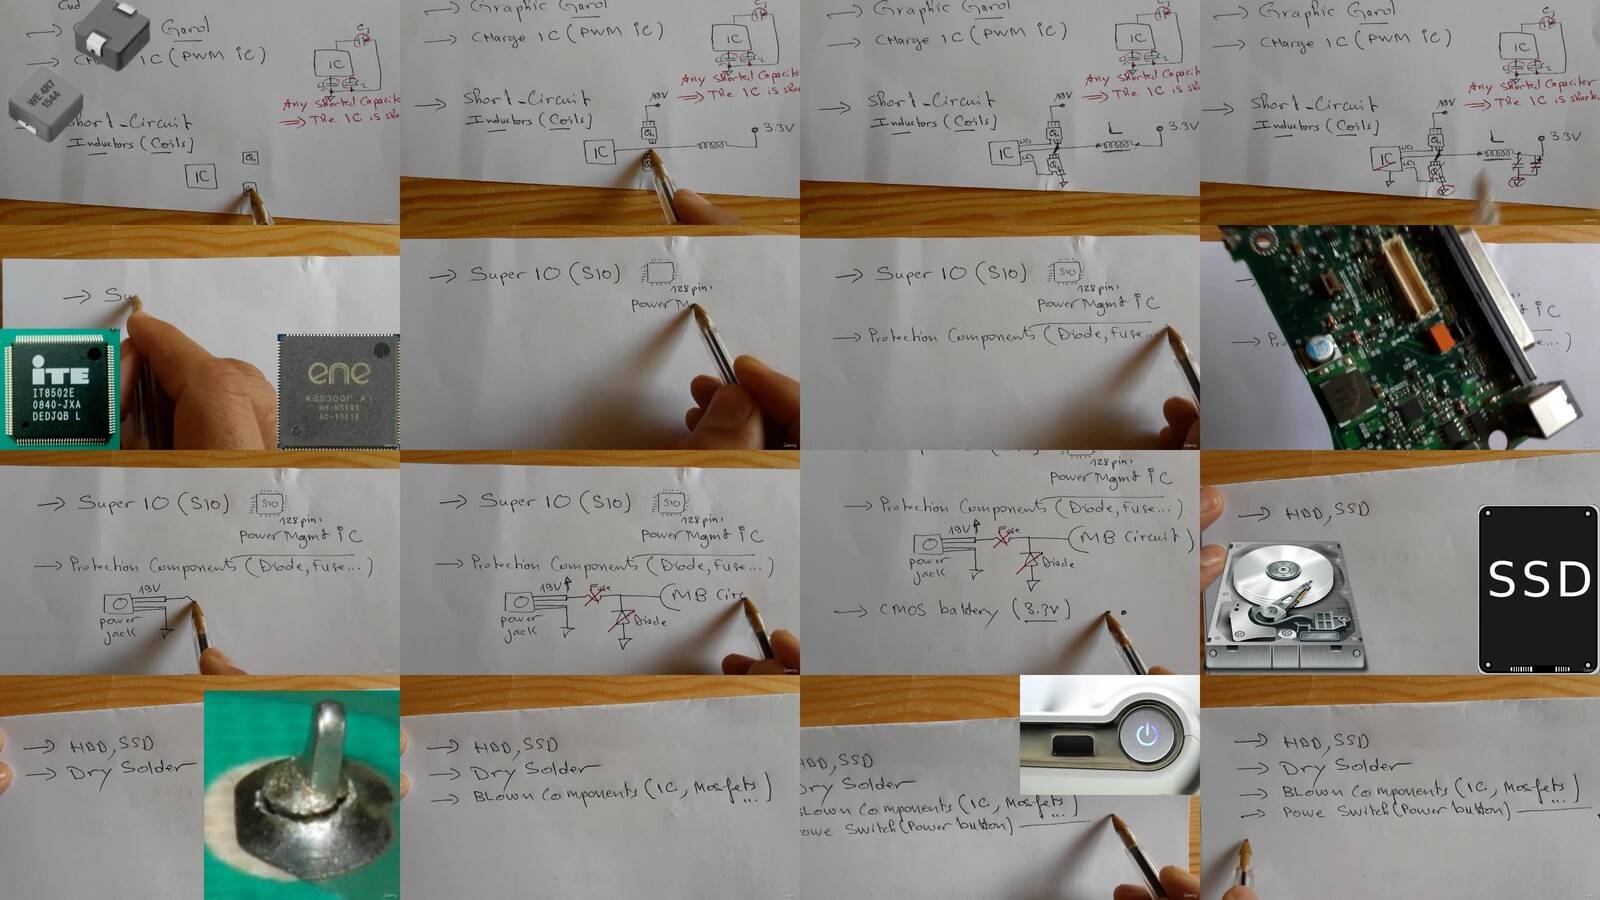 Garol
IC (PWM iC)
IC
WE 4R7
1544
Any Shorted Capacitor
=> The IC is
Short-Circuit
Inductors (Coils)
IC
Graphic Garol
CHarge IC (PWM iC)
IC
Any Shorted Capacitor
=> The IC is
19V
Short-Circuit
Inductors (Coils)
IC
3.3V
Graphic Garol
CHarge IC (PWM iC)
IC
Any Shorted Capacitor
=> The IC is
19V
Short-Circuit
Inductors (Coils)
IC
L
3.3V
Graphic Garol
CHarge IC (PWM iC)
IC
Any Shorted Capacitor
=> The IC is
19V
Short-Circuit
Inductors (Coils)
IC
L
3.3V
→ Su
iTE
IT8502E
0840-JXA
DEDJQB L
ene
→ Super IO (SIO)
128 pin
power M
→ Super IO (SIO)
SIO
128 pin
power Mgmt iC
→ Protection Components (Diode, Fuse...
→ Super IO (SIO)
SIO
128 pin
power Mgmt iC
→ Protection Components (Diode, Fuse...)
19V
power
jack
→ Super IO (SIO)
SIO
128 pin
power Mgmt iC
→ Protection Components (Diode, Fuse...)
19V
Fuse
(MB Circ
power
jack
Diode
128 pin
power Mgmt iC
→ Protection Components (Diode, Fuse...)
19V
Fuse
(MB Circuit)
power
jack
Diode
→ CMOS battery (3.3V)
→ HDD, SSD
SSD
→ HDD, SSD
→ Dry Solder
→ HDD, SSD
→ Dry Solder
→ Blown Components (IC, Mosfets...)
HDD, SSD
Dry Solder
Blown Components (IC, Mosfets...)
owe Switch (Power button)
→ HDD, SSD
→ Dry Solder
→ Blown Components (IC, Mosfets...)
→ Powe Switch (Power button)